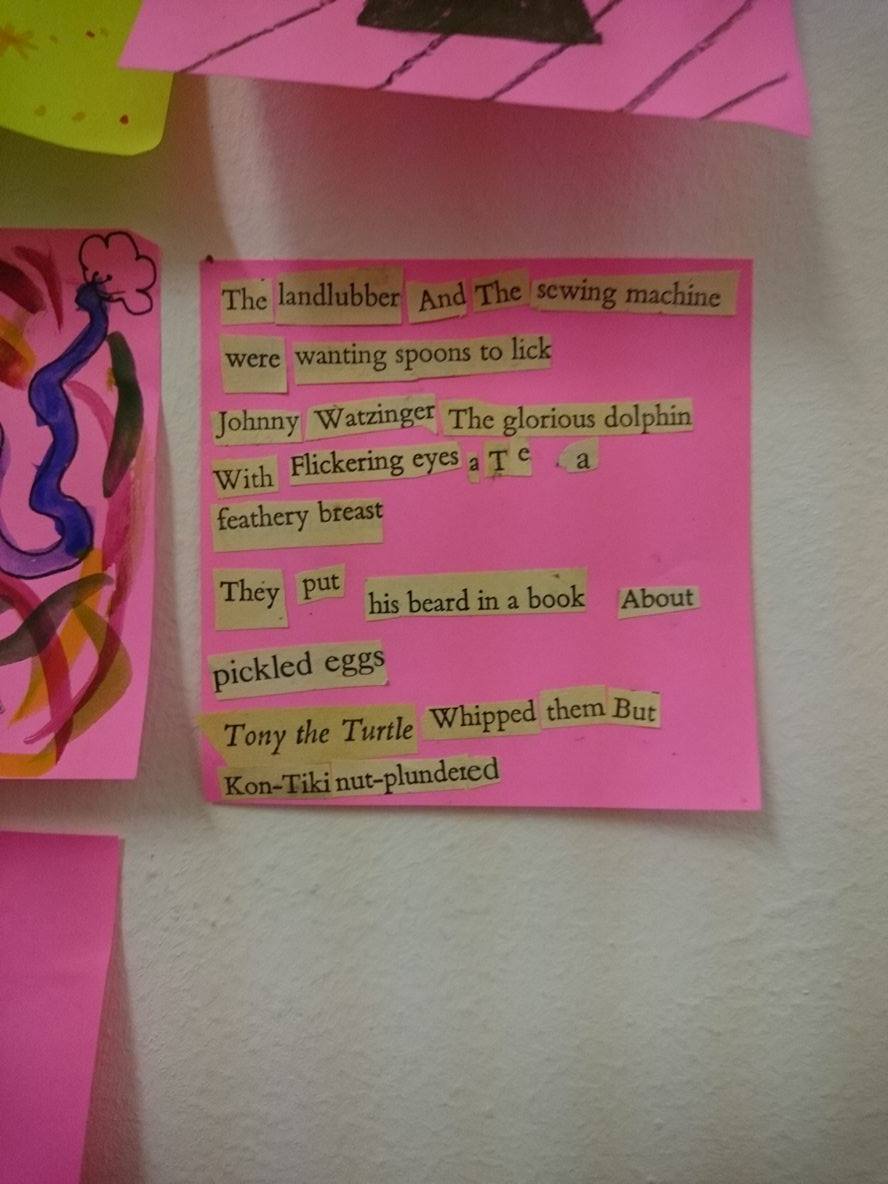 The landlubber And The sewing machine
were wanting spoons to lick
Johnny Watzinger The glorious dolphin
With Flickering eyes a T e a
feathery breast
They put his beard in a book About
pickled eggs
Tony the Turtle Whipped them But
Kon-Tiki nut-plundered